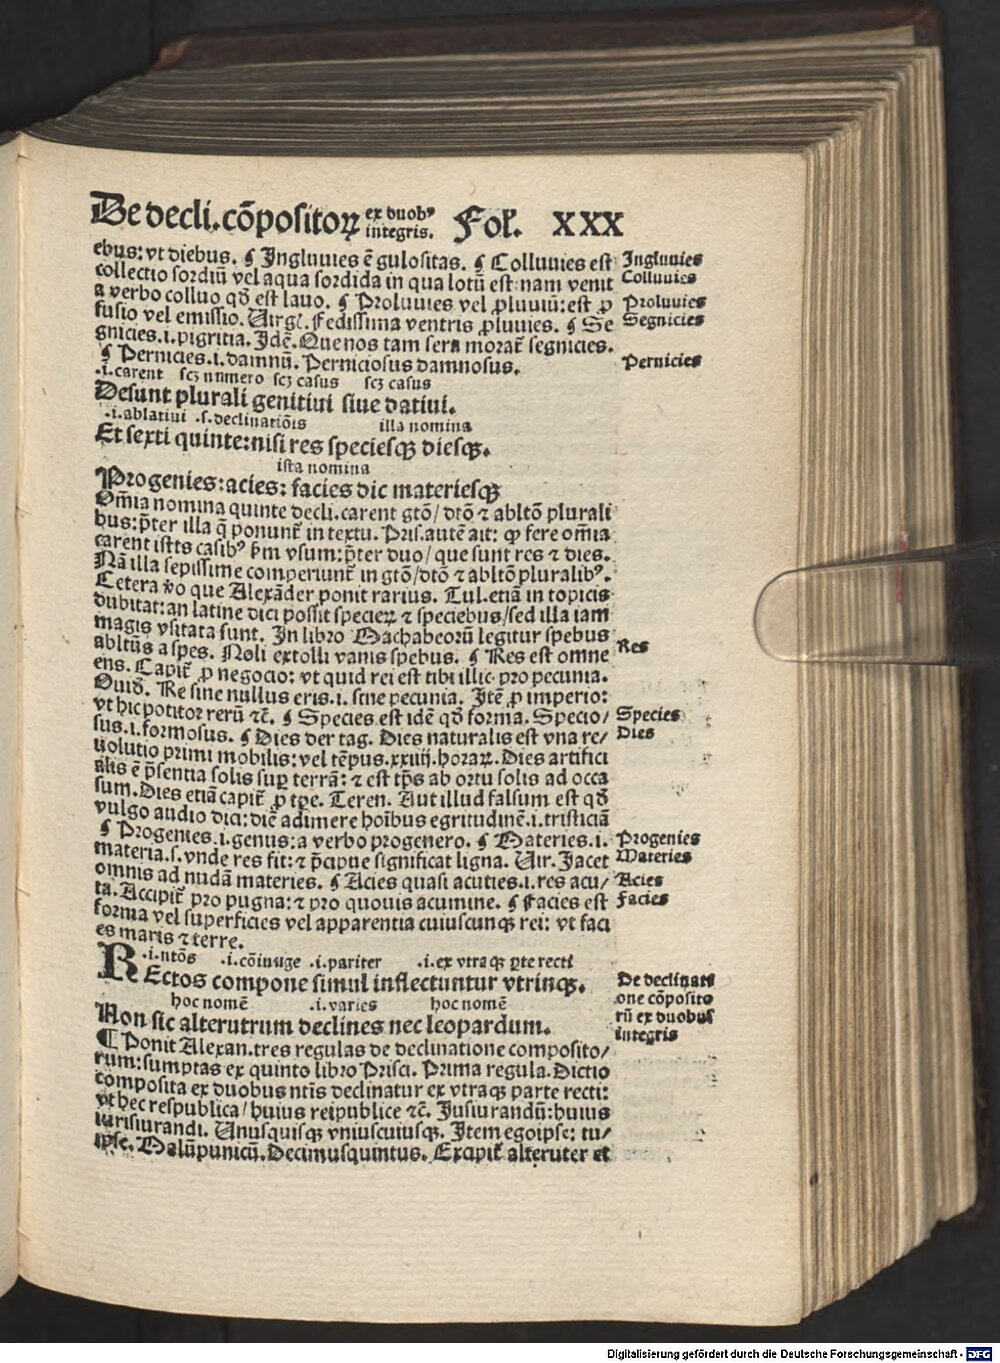 De decli. cōpositoꝝ ex duobꝰ integris. Fol. XXX
ebus: vt diebus. ¶ Ingluuies ē gulositas. ¶ Colluuies est Ingluuies
collectio sordiū vel aqua sordida in qua lotū est: nam venit Colluuies
a verbo colluo qd̄ est lauo. ¶ Proluuies vel ꝓluuiū: est ꝓ Proluuies
fusio vel emissio. Uirgl. Fedissima ventris ꝓluuies. ¶ Se Segnicies
gnicies .i. pigritia. Idē. Que nos tam sera morat᷑ segnicies.
¶ Pernicies .i. damnū. Perniciosus damnosus. Pernicies
.i. carent scꝫ numero scꝫ casus scꝫ casus
Desunt plurali genitiui siue datiui.
.i. ablatiui .s. declinatiōis illa nomina
Et sexti quinte: nisi res speciesqꝫ diesqꝫ.
ista nomina
Progenies: acies: facies dic materiesqꝫ
Om̄ia nomina quinte decli. carent gtō/ dtō ⁊ abltō plurali
bus: p̄ter illa q̄ ponunt᷑ in textu. Pris. autē ait: ꝙ fere om̄ia
carent istis casibꝰ ẜm vsum: p̄ter duo/ que sunt res ⁊ dies.
Nā illa sepissime comperiunt᷑ in gtō/ dtō ⁊ abltō pluralibꝰ.
Cetera v̄o que Alexāder ponit rarius. Tul. etiā in topicis
dubitat: an latine dici possit specieꝝ ⁊ speciebus/ sed illa iam
magis vsitata sunt. In libro Machabeorū legitur spebus
abltūs a spes. Noli extolli vanis spebus. ¶ Res est omne Res
ens. Capit᷑ ꝓ negocio: vt quid rei est tibi illic. pro pecunia.
Ouid. Re sine nullus eris .i. sine pecunia. Itē ꝓ imperio:
vt hic potitor rerū ⁊c̄. ¶ Species est idē qd̄ forma. Specio/ Species
sus .i. formosus. ¶ Dies der tag. Dies naturalis est vna re/ Dies
uolutio primi mobilis: vel tēpus .xxiiij. horaꝝ. Dies artifici
alis ē p̄sentia solis suꝑ terrā: ⁊ est tp̄s ab ortu solis ad occa
sum. Dies etiā capit᷑ ꝓ tꝑe. Teren. Aut illud falsum est qd̄
vulgo audio dici: diē adimere hoībus egritudinē .i. tristiciā
¶ Progenies .i. genus: a verbo progenero. ¶ Materies .i. Progenies
materia .s. vnde res fit: ⁊ p̄cipue significat ligna. Uir. Jacet Materies
omnis ad nudā materies. ¶ Acies quasi acuties .i. res acu/ Acies
ta. Accipit᷑ pro pugna: ⁊ pro quouis acumine. ¶ Facies est Facies
forma vel superficies vel apparentia cuiuscunqꝫ rei: vt faci
es maris ⁊ terre.
.i. ntōs .i. cōiunge .i. pariter .i. ex vtraqꝫ ꝑte recti
REctos compone simul inflectuntur vtrinqꝫ. De declinati
hoc nomē .i. varies hoc nomē one cōposito
Non sic alterutrum declines nec leopardum. rū ex duobus
¶ Ponit Alexan. tres regulas de declinatione composito/ integris
rum: sumptas ex quinto libro Prisci. Prima regula. Dictio
composita ex duobus ntīs declinatur ex vtraqꝫ parte recti:
vt hec respublica/ huius reipublice ⁊c̄. Jusiurandū: huius
iurisiurandi. Unusquisqꝫ vniuscuiusqꝫ. Item egoipse: tu/
ipse. Malūpunicū. Decimusquintus. Excipit᷑ alteruter et
Digitalisierung gefördert durch die Deutsche Forschungsgemeinschaft - DFG